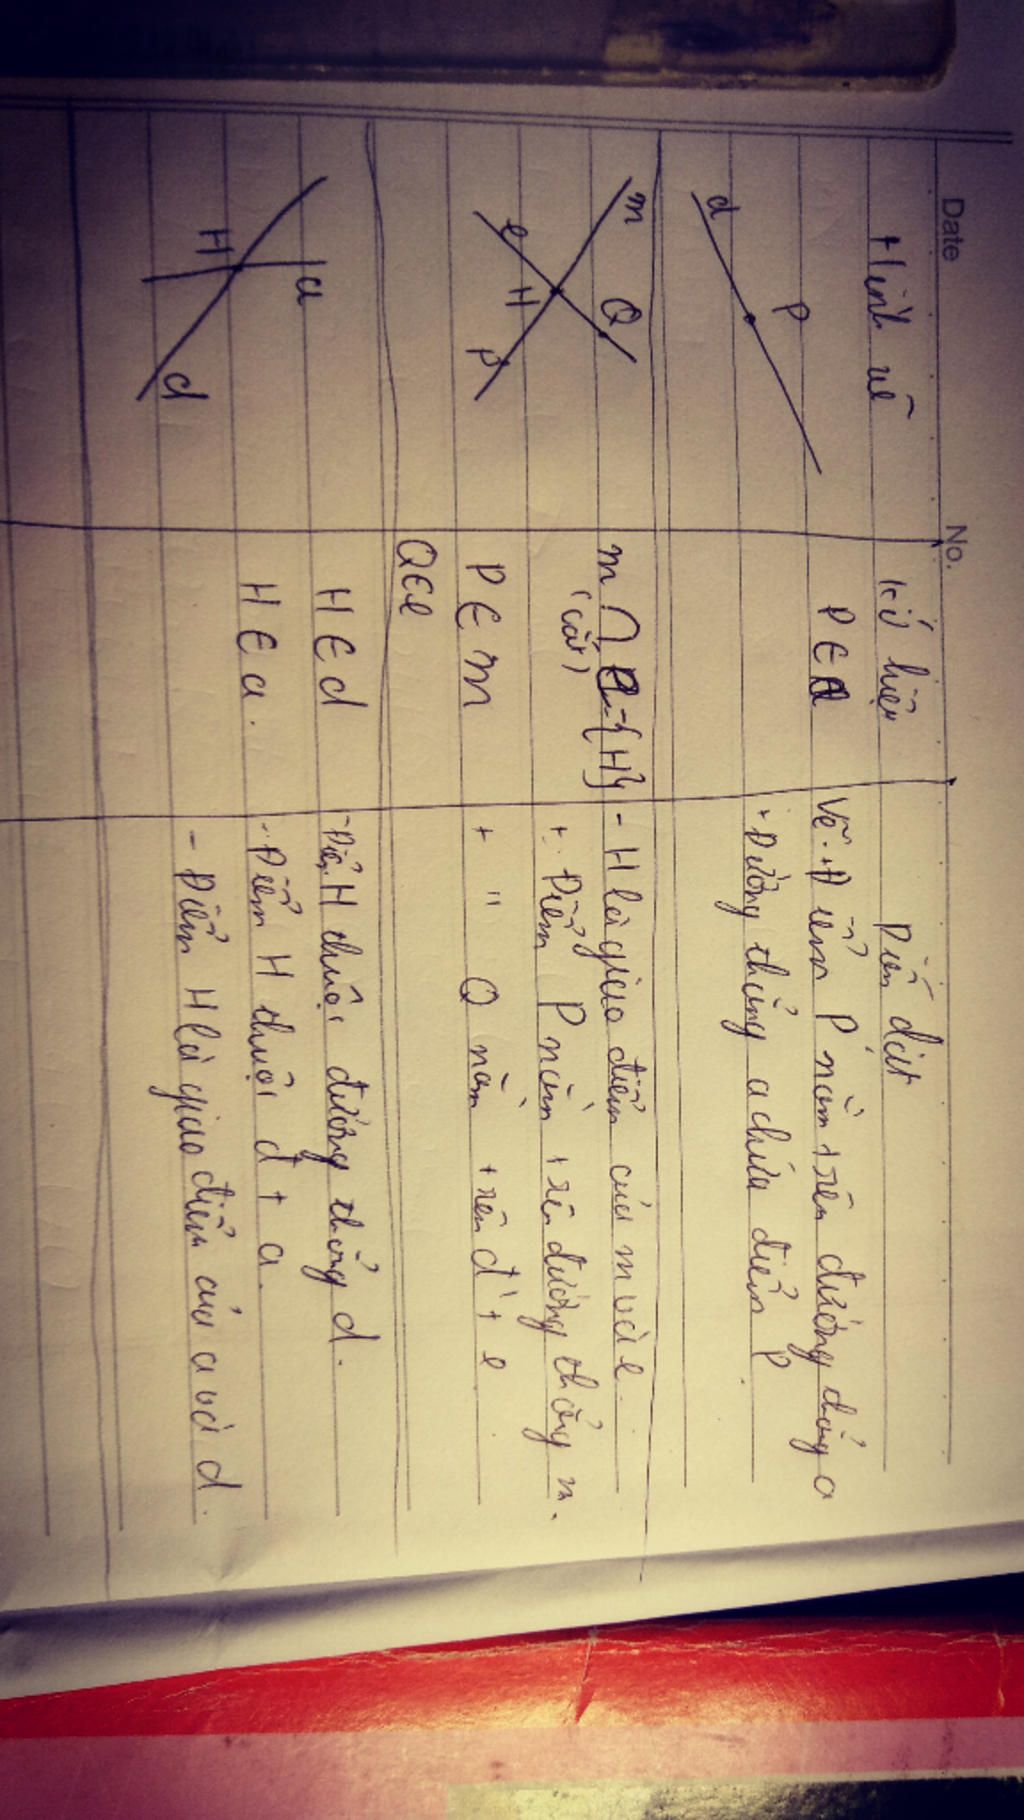 Date No.
Hình vẽ Kí hiệu Diễn đạt
d P
P ∈ a
Vẽ. + Điểm P nằm trên đường thẳng a
+ Đường thẳng a chứa điểm P.
m Q
e H
P
m ∩ e = {H}
(cắt)
P ∈ m
Q ∈ e
- H là giao điểm của m và e.
+ Điểm P nằm trên đường thẳng m.
+ " Q nằm trên đ't e
a
H
d
H ∈ d
H ∈ a.
- Điểm H thuộc đường thẳng d.
- Điểm H thuộc đt a.
- Điểm H là giao điểm của a và d.